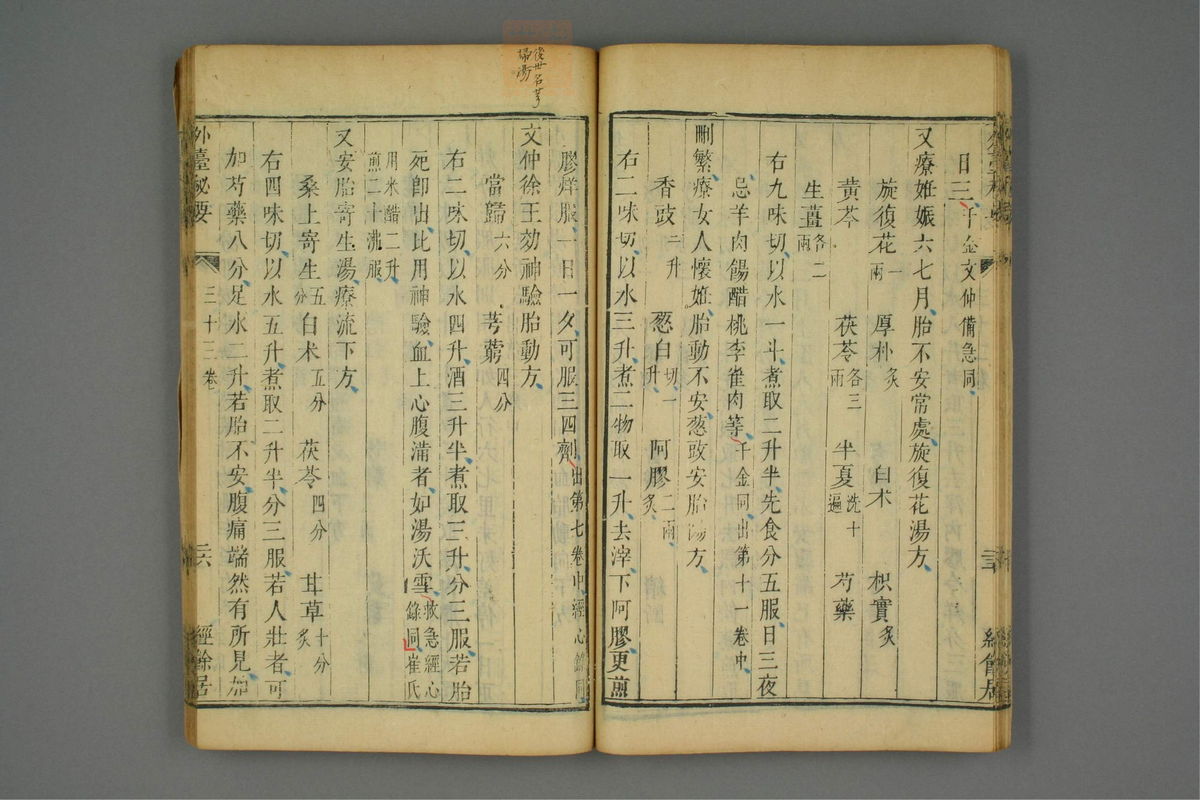 日三千金文仲備急同
又療妊娠六七月胎不安常處旋復花湯方
旋復花一兩 厚朴炙 白术 枳實炙
黃芩 茯苓各三兩 半夏洗十遍 芍藥
生薑各二兩
右九味切以水一斗煮取二升半先食分五服日三夜
忌羊肉餳醋桃李雀肉等千金同出第十一卷中
刪繁療女人懷妊胎動不安葱豉安胎湯方
香豉一升 葱白切一升 阿膠二兩炙
右二味切以水三升煮二物取一升去滓下阿膠更煎
膠烊服一日一夕可服三四劑出第七卷中經心錄同
後世名芎歸湯
文仲徐王効神驗胎動方
當歸六分 芎藭四分
右二味切以水四升酒三升半煮取三升分三服若胎
死卽出比用神驗血上心腹滿者如湯沃雪救急經心錄同崔氏
用米醋二升煎二十沸服
又安胎寄生湯療流下方
桑上寄生五分 白术五分 茯苓四分 甘草十分炙
右四味切以水五升煮取二升半分三服若人壯者可
加芍藥八分足水二升若胎不安腹痛端然有所見加
外臺秘要 三十三卷 二六 經餘居